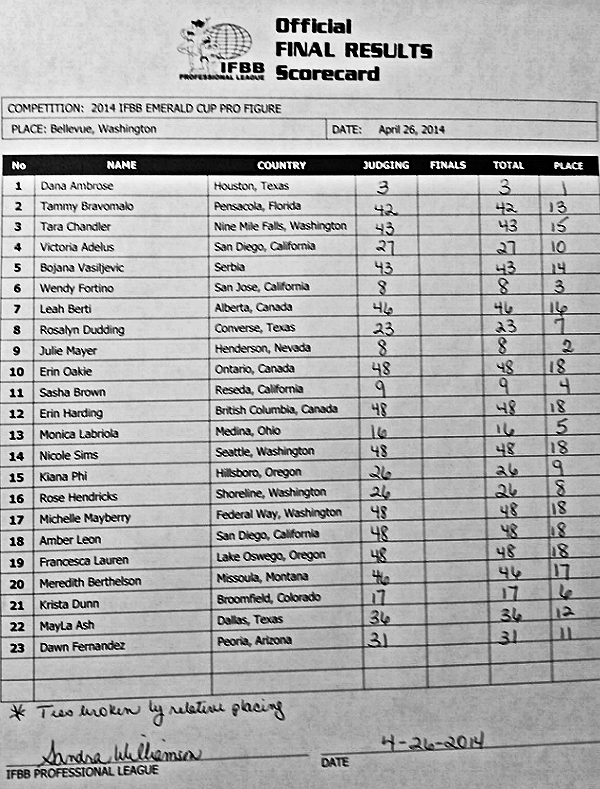 Official
FINAL RESULTS
Scorecard
IFBB
PROFESSIONAL LEAGUE
COMPETITION: 2014 IFBB EMERALD CUP PRO FIGURE
PLACE: Bellevue, Washington DATE: April 26, 2014
No NAME COUNTRY JUDGING FINALS TOTAL PLACE
1 Dana Ambrose Houston, Texas 3 3 1
2 Tammy Bravomalo Pensacola, Florida 42 42 13
3 Tara Chandler Nine Mile Falls, Washington 43 43 15
4 Victoria Adelus San Diego, California 27 27 10
5 Bojana Vasiljevic Serbia 43 43 14
6 Wendy Fortino San Jose, California 8 8 3
7 Leah Berti Alberta, Canada 46 46 16
8 Rosalyn Dudding Converse, Texas 23 23 7
9 Julie Mayer Henderson, Nevada 8 8 2
10 Erin Oakie Ontario, Canada 48 48 18
11 Sasha Brown Reseda, California 9 9 4
12 Erin Harding British Columbia, Canada 48 48 18
13 Monica Labriola Medina, Ohio 16 16 5
14 Nicole Sims Seattle, Washington 48 48 18
15 Kiana Phi Hillsboro, Oregon 26 26 9
16 Rose Hendricks Shoreline, Washington 26 26 8
17 Michelle Mayberry Federal Way, Washington 48 48 18
18 Amber Leon San Diego, California 48 48 18
19 Francesca Lauren Lake Oswego, Oregon 48 48 18
20 Meredith Berthelson Missoula, Montana 46 46 17
21 Krista Dunn Broomfield, Colorado 17 17 6
22 MayLa Ash Dallas, Texas 36 36 12
23 Dawn Fernandez Peoria, Arizona 31 31 11
* Ties broken by relative placing
Sandra Williamson 4-26-2014
IFBB PROFESSIONAL LEAGUE DATE